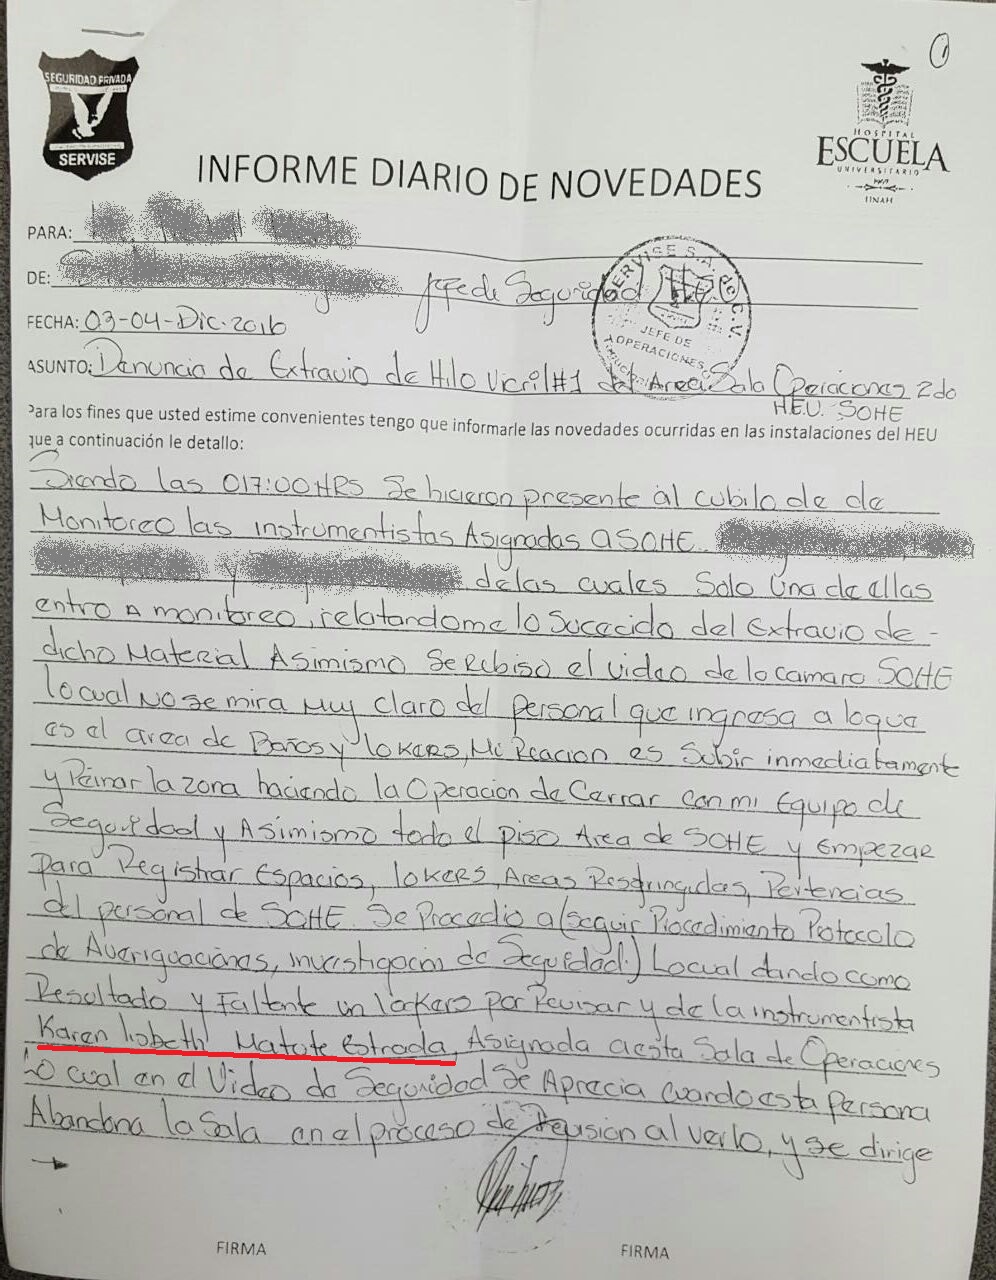 1
SEGURIDAD PRIVADA
SERVISE
HOSPITAL
ESCUELA
UNIVERSITARIO
UNAH
INFORME DIARIO DE NOVEDADES
PARA:
DE: Jefe de Seguridad
SERVISE S.A. de C.V.
JEFE DE
OPERACIONES
FECHA: 03-04-Dic.2016
ASUNTO: Denuncia de Extravio de Hilo Vicril #1 del Area Sala Operaciones 2do
HEU. SOHE
Para los fines que usted estime convenientes tengo que informarle las novedades ocurridas en las instalaciones del HEU
que a continuación le detallo:
Siendo las 017:00HRS Se hicieron presente al cubilo de de
Monitoreo las instrumentistas Asignadas a SOHE.
y de las cuales Solo Una de ellas
entro a monitoreo, relatandome lo Sucecido del Extravio de -
dicho Material Asimismo Se rebiso el video de la camara SOHE
lo cual no se mira muy claro del personal que ingresa a loque
es el area de Baños y lokers, Mi Reacion es Subir inmediatamente
y Peinar la zona haciendo la Operacion de Cerrar con mi Equipo de
Seguridad y Asimismo todo el piso Area de SOHE y Empezar
para Registrar Espacios, lokers, Areas Resgringidas, Pertencias
del personal de SOHE. Se Procedio a (Seguir Procedimiento Protocolo
de Averiguaciones, investigacion de Seguidad.) Locual dando como
Resultado y Faltente un lokers por Revisar y de la instrumentista
Karen lisbeth Matute Estrada, Asignada a esta Sala de Operaciones
Lo cual en el Video de Seguridad Se Aprecia cuando esta persona
Abandona la Sala en el proceso de Revision al verlo, y se dirige
FIRMA
FIRMA